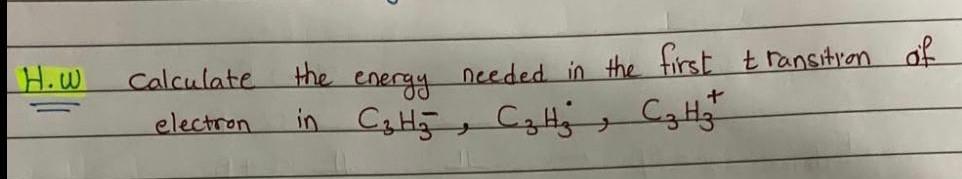 H.W Calculate the energy needed in the first transition of
electron in C₃H₃⁻, C₃H₃•, C₃H₃⁺